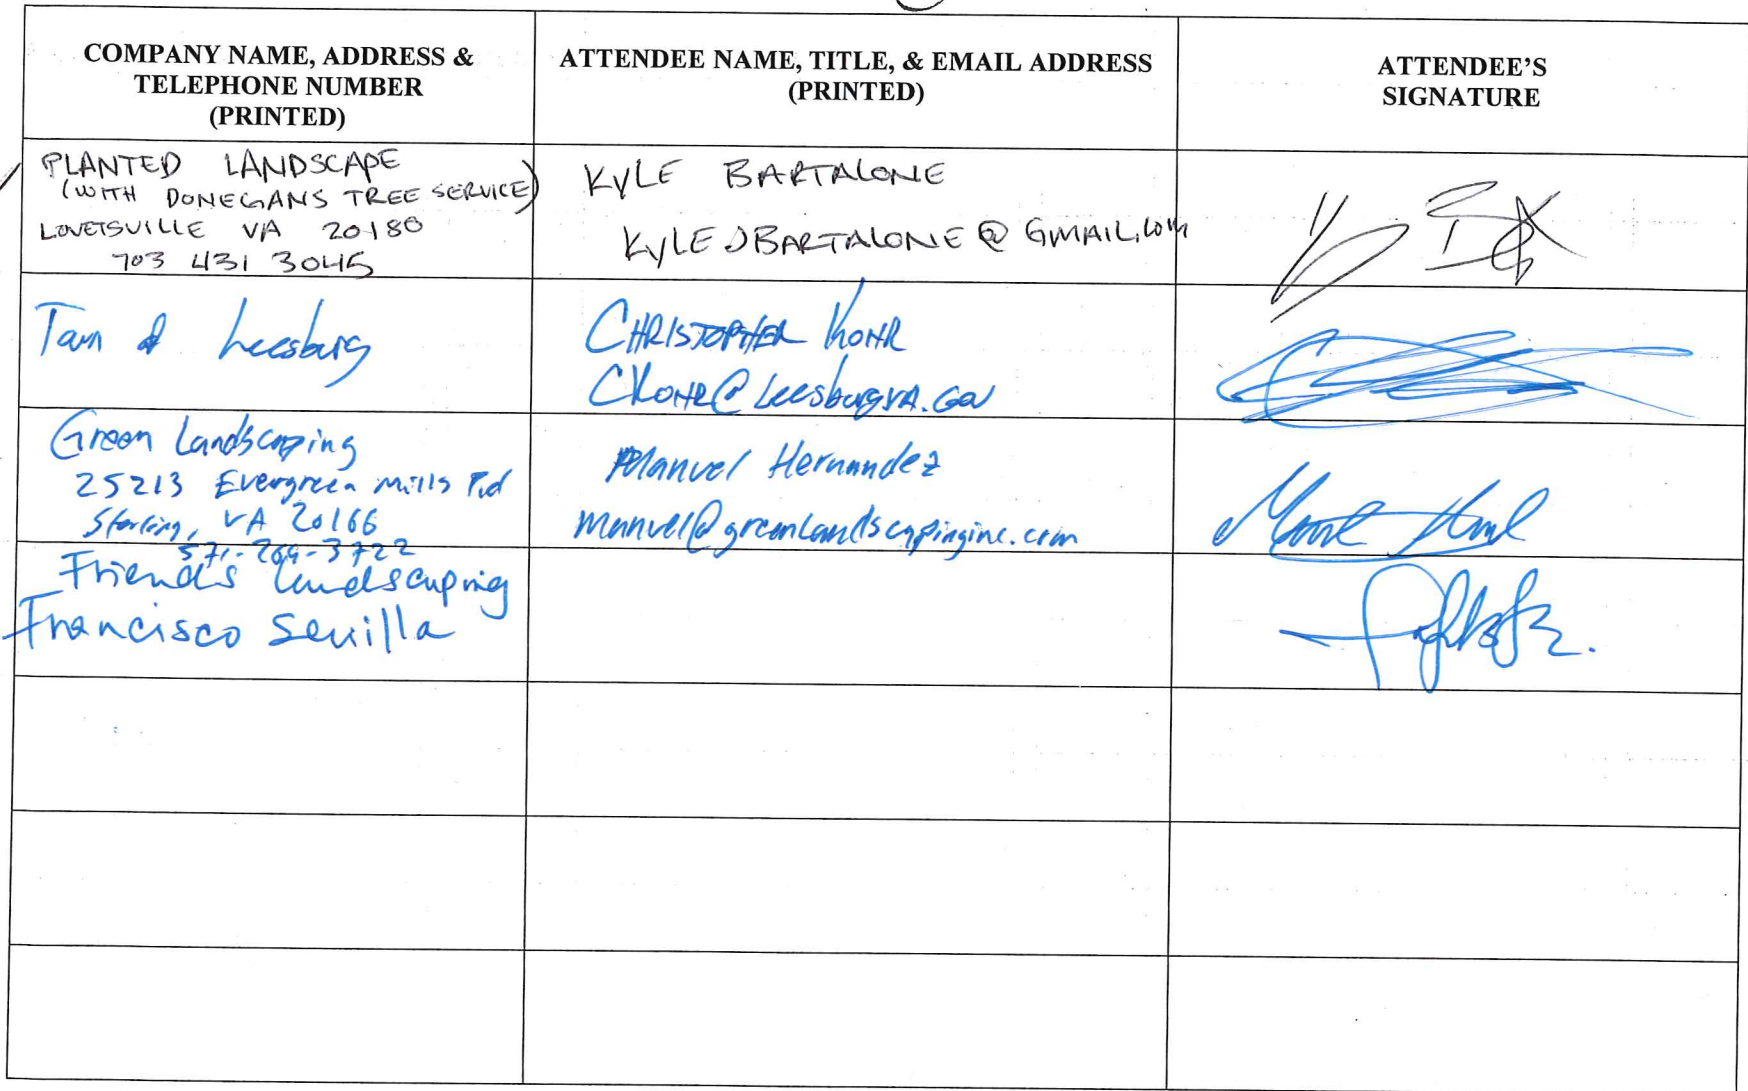 COMPANY NAME, ADDRESS &
TELEPHONE NUMBER
(PRINTED)
ATTENDEE NAME, TITLE, & EMAIL ADDRESS
(PRINTED)
ATTENDEE'S
SIGNATURE
PLANTED LANDSCAPE
(WITH DONEGANS TREE SERVICE)
LOVETSVILLE VA 20180
703 431 3045
KYLE BARTALONE
KYLEJBARTALONE@GMAIL.COM
Town of Leesburg
CHRISTOPHER KOHR
CKOHR@LeesburgVA.Gov
Green Landscaping
25213 Evergreen Mills Rd
Sterling, VA 20166
571-269-3722
Manuel Hernandez
manuel@greenlandscapinginc.com
Friends landscaping
Francisco Sevilla